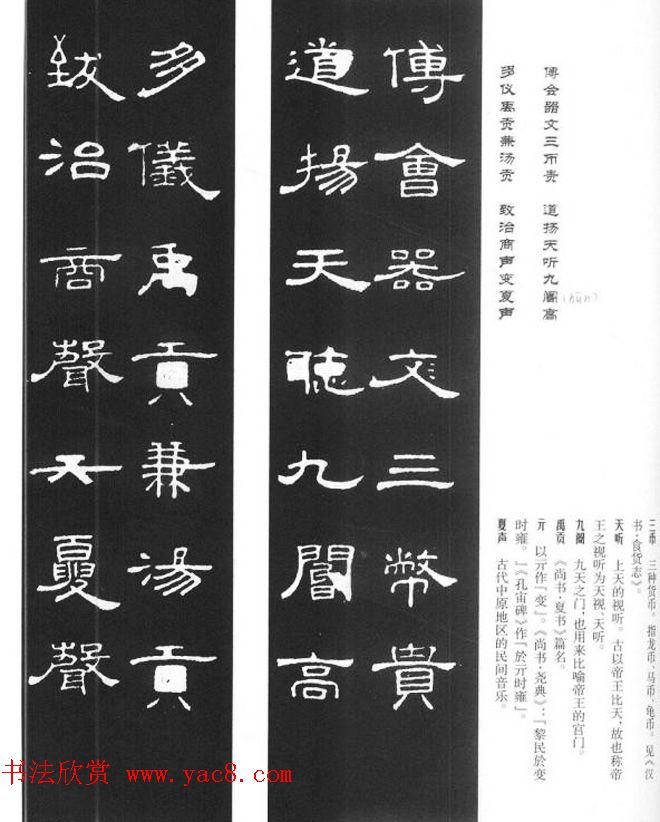 傅会器文三币贵 道扬天听九阍高(hūn)
多仪禹贡兼汤贡 致治商声变夏声
三币 三种货币。指龙币、马币、龟币。见《汉
书·食货志》。
天听 上天的视听。古以帝王比天,故也称帝
王之视听为天视、天听。
九阍 九天之门,也用来比喻帝王的宫门。
禹贡 《尚书·夏书》篇名。
亓 以亓作「变」。《尚书·尧典》:「黎民於变
时雍。」《孔宙碑》作「於亓时雍」。
夏声 古代中原地区的民间音乐。
傅會器文三幣貴
道揚天聽九閽高
多儀禹貢兼湯貢
致治商聲亓夏聲
书法欣赏 www.yac8.com